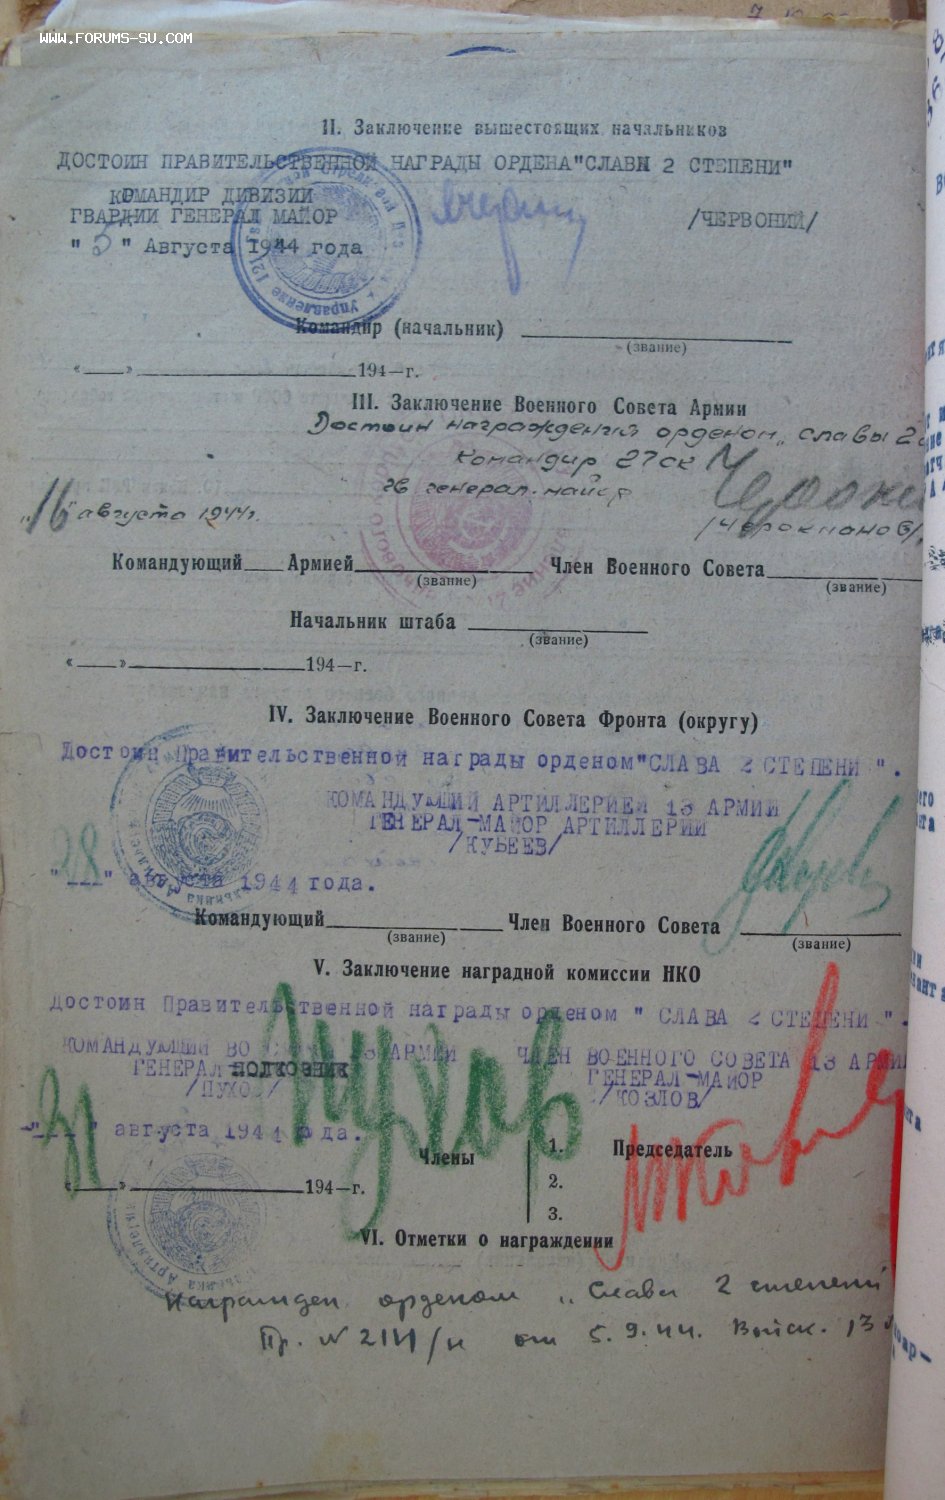 WWW.FORUMS-SU.COM
II. Заключение вышестоящих начальников
ДОСТОИН ПРАВИТЕЛЬСТВЕННОЙ НАГРАДЫ ОРДЕНА"СЛАВЫ 2 СТЕПЕНИ"
КОМАНДИР ДИВИЗИИ
ГВАРДИИ ГЕНЕРАЛ МАЙОР /ЧЕРВОНИЙ/
" 5 " Августа 1944 года
Командир (начальник)
(звание)
« » 194—г.
III. Заключение Военного Совета Армии
Достоин награждения орденом „Славы 2
Командир 27 ск
гв генерал-майор
"16" августа 1944г.
Командующий Армией Член Военного Совета
(звание) (звание)
Начальник штаба
(звание)
« » 194—г.
IV. Заключение Военного Совета Фронта (округу)
Достоин Правительственной награды орденом"СЛАВА 2 СТЕПЕНИ ".
КОМАНДУЮЩИЙ АРТИЛЛЕРИЕЙ 13 АРМИИ
ГЕНЕРАЛ-МАЙОР АРТИЛЛЕРИИ
/КУБЕЕВ/
"28" августа 1944 года.
Командующий Член Военного Совета
(звание) (звание)
V. Заключение наградной комиссии НКО
достоин Правительственной награды орденом " СЛАВА 2 СТЕПЕНИ ".
КОМАНДУЮЩИЙ ВОЙСКАМИ 13 АРМИИ ЧЛЕН ВОЕННОГО СОВЕТА 13 АРМИИ
ГЕНЕРАЛ-ПОЛКОВНИК ГЕНЕРАЛ-МАЙОР
/ПУХОВ/ /КОЗЛОВ/
"31" августа 1944 года.
Пухов
Члены 1. Председатель
« » 194—г. 2.
3.
VI. Отметки о награждении
Награжден орденом „Славы 2 степени
Пр. N 211/н от 5.9.44. Войск. 13